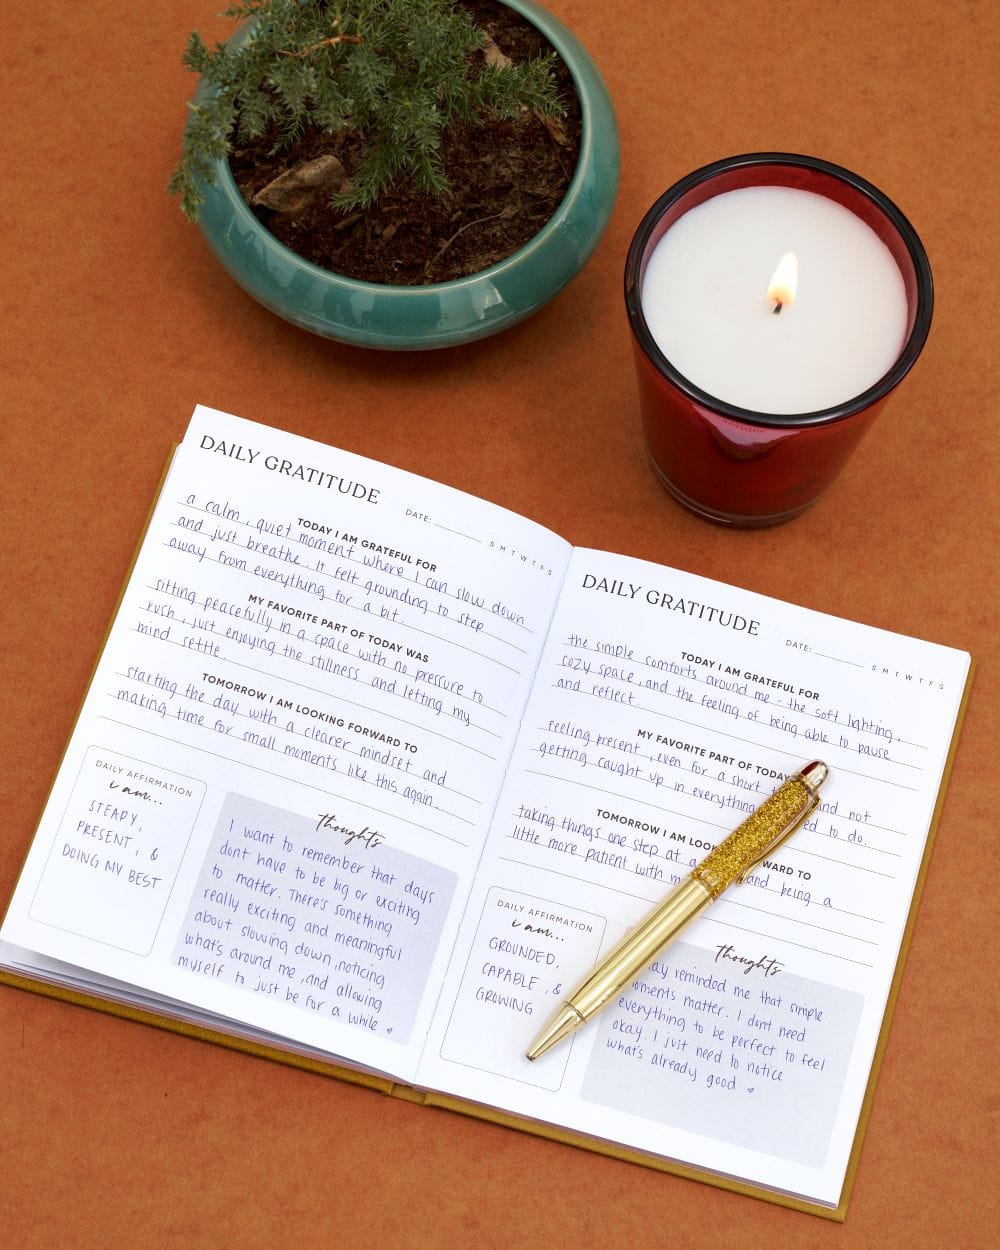 DAILY GRATITUDE
DATE:
S M T W T F S
TODAY I AM GRATEFUL FOR
a calm, quiet moment where I can slow down
and just breathe. it felt grounding to step
away from everything for a bit.
MY FAVORITE PART OF TODAY WAS
sitting peacefully in a space with no pressure to
rush, just enjoying the stillness and letting my
mind settle.
TOMORROW I AM LOOKING FORWARD TO
starting the day with a clearer mindset and
making time for small moments like this again.
DAILY AFFIRMATION
i am...
STEADY,
PRESENT, &
DOING MY BEST
thoughts
I want to remember that days
dont have to be big or exciting
to matter. There's something
really exciting and meaningful
about slowing down, noticing
what's around me, and allowing
myself to just be for a while
DAILY GRATITUDE
DATE:
S M T W T F S
TODAY I AM GRATEFUL FOR
the simple comforts around me - the soft lighting,
cozy space, and the feeling of being able to pause
and reflect.
MY FAVORITE PART OF TODAY
feeling present, even for a short and not
getting caught up in everything to do.
TOMORROW I AM FORWARD TO
taking things one step at a and being a
little more patient with
DAILY AFFIRMATION
i am...
GROUNDED,
CAPABLE, &
GROWING
thoughts
reminded me that simple
moments matter. I dont need
everything to be perfect to feel
okay. I just need to notice
what's already good